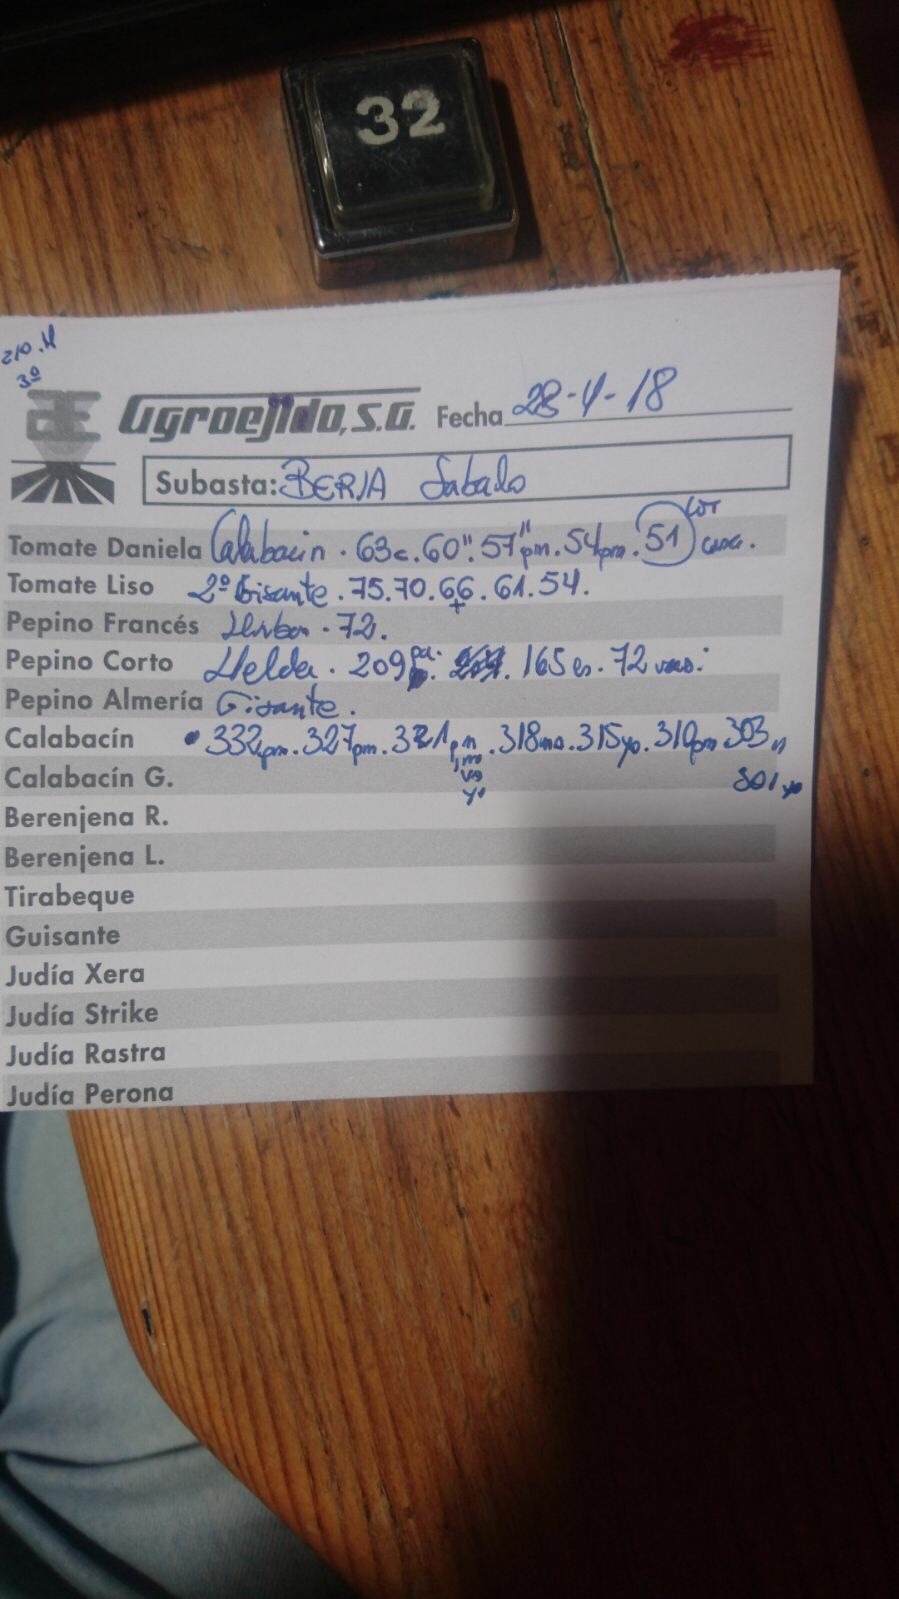 32
210.M
3º
Agroejido, S.A. Fecha 28-4-18
Subasta: BERJA Sabado
Tomate Daniela Calabacin . 63c. 60". 57" pm. 54 pm. 51
Tomate Liso 2º Gisante . 75. 70. 66. 61. 54.
+
Pepino Francés . 72.
Pepino Corto . 209 . 165 . 72
Pepino Almería Gisante.
Calabacín • 332 pm. 327 pm. 321 pm. 318 mo. 315 yo. 310 pm 303
Calabacín G. 301 yo
Berenjena R.
Berenjena L.
Tirabeque
Guisante
Judía Xera
Judía Strike
Judía Rastra
Judía Perona